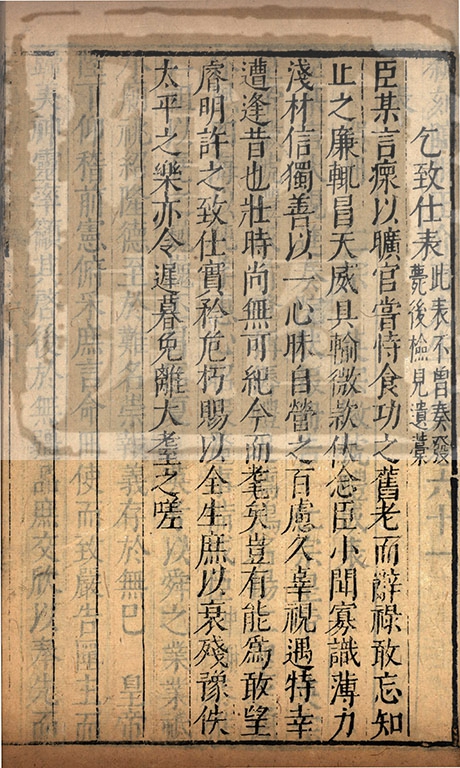 乞致仕表此表不曾奏發
薨後檢見遺藁
臣某言瘝以曠官嘗恃食功之舊老而辭祿敢忘知
止之廉輒冒天威具輸微款伏念臣小聞寡識薄力
淺材信獨善以一心昧自營之百慮久辜視遇特幸
遭逢昔也壯時尚無可紀今而耄矣豈有能為敢望
睿明許之致仕實矜危朽賜以全生庶以衰殘豫佚
太平之樂亦令遲暮免離大耋之嗟